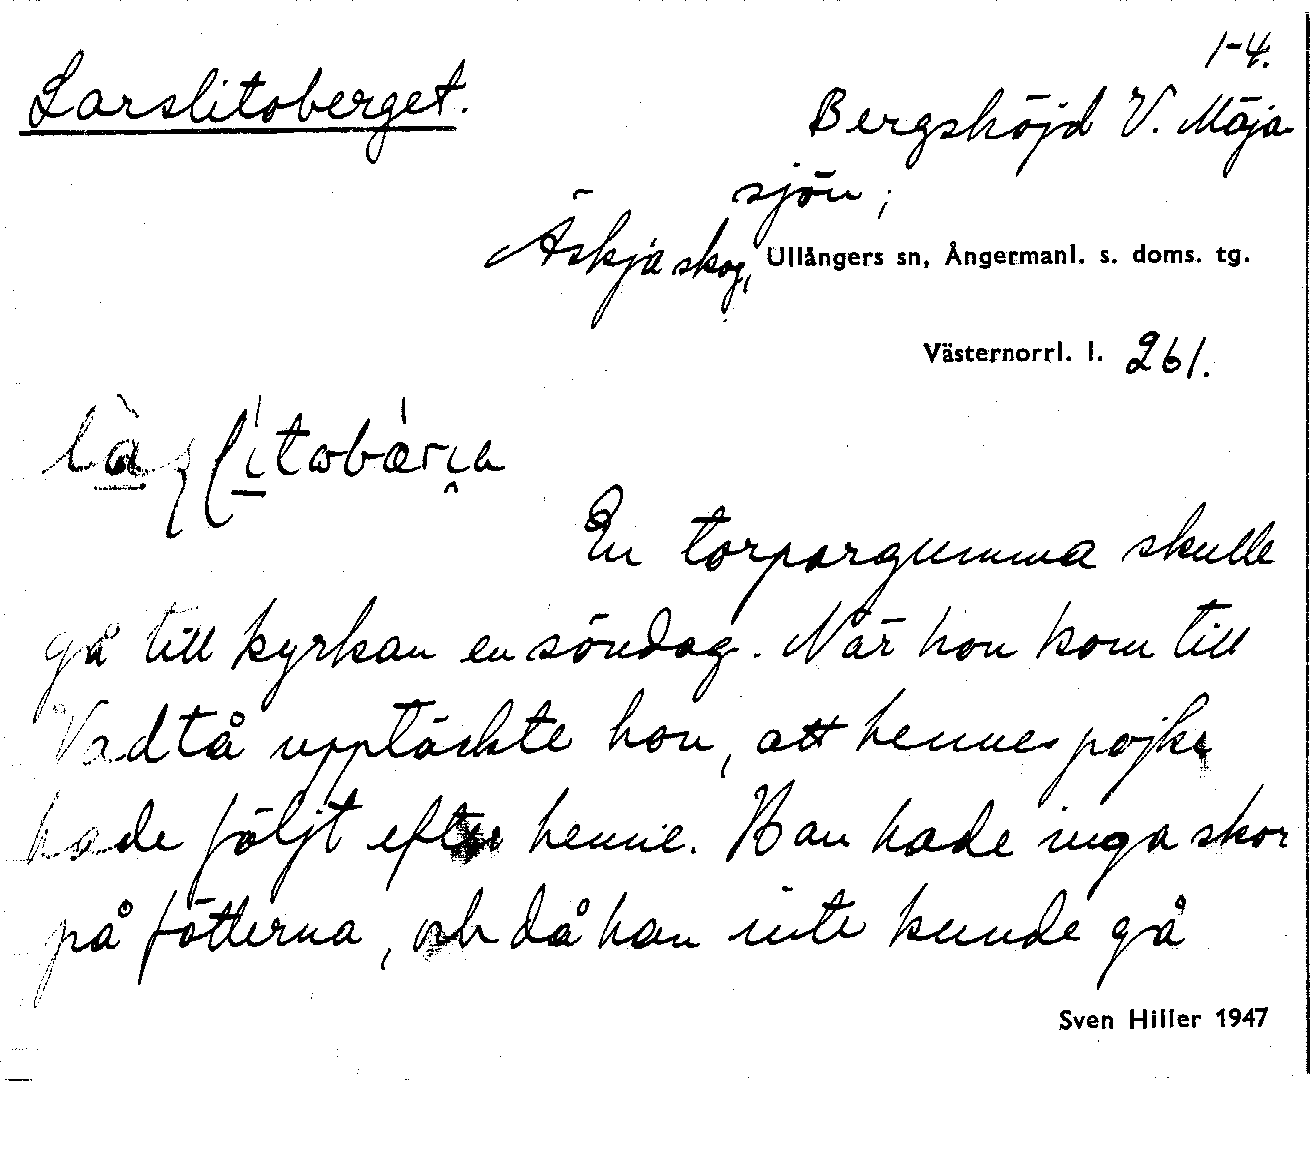 1-4.
Larslitoberget.
Bergshöjd V. Mäja-
sjön;
Äskja skog, Ullångers sn, Ångermanl. s. doms. tg.
Västernorrl. l. 261.
En torpargumma skulle
gå till kyrkan en söndag. När hon kom till
Vadtå upptäckte hon, att hennes pojke
hade följt efter henne. Han hade inga skor
på fötterna, och då han inte kunde gå
Sven Hiller 1947